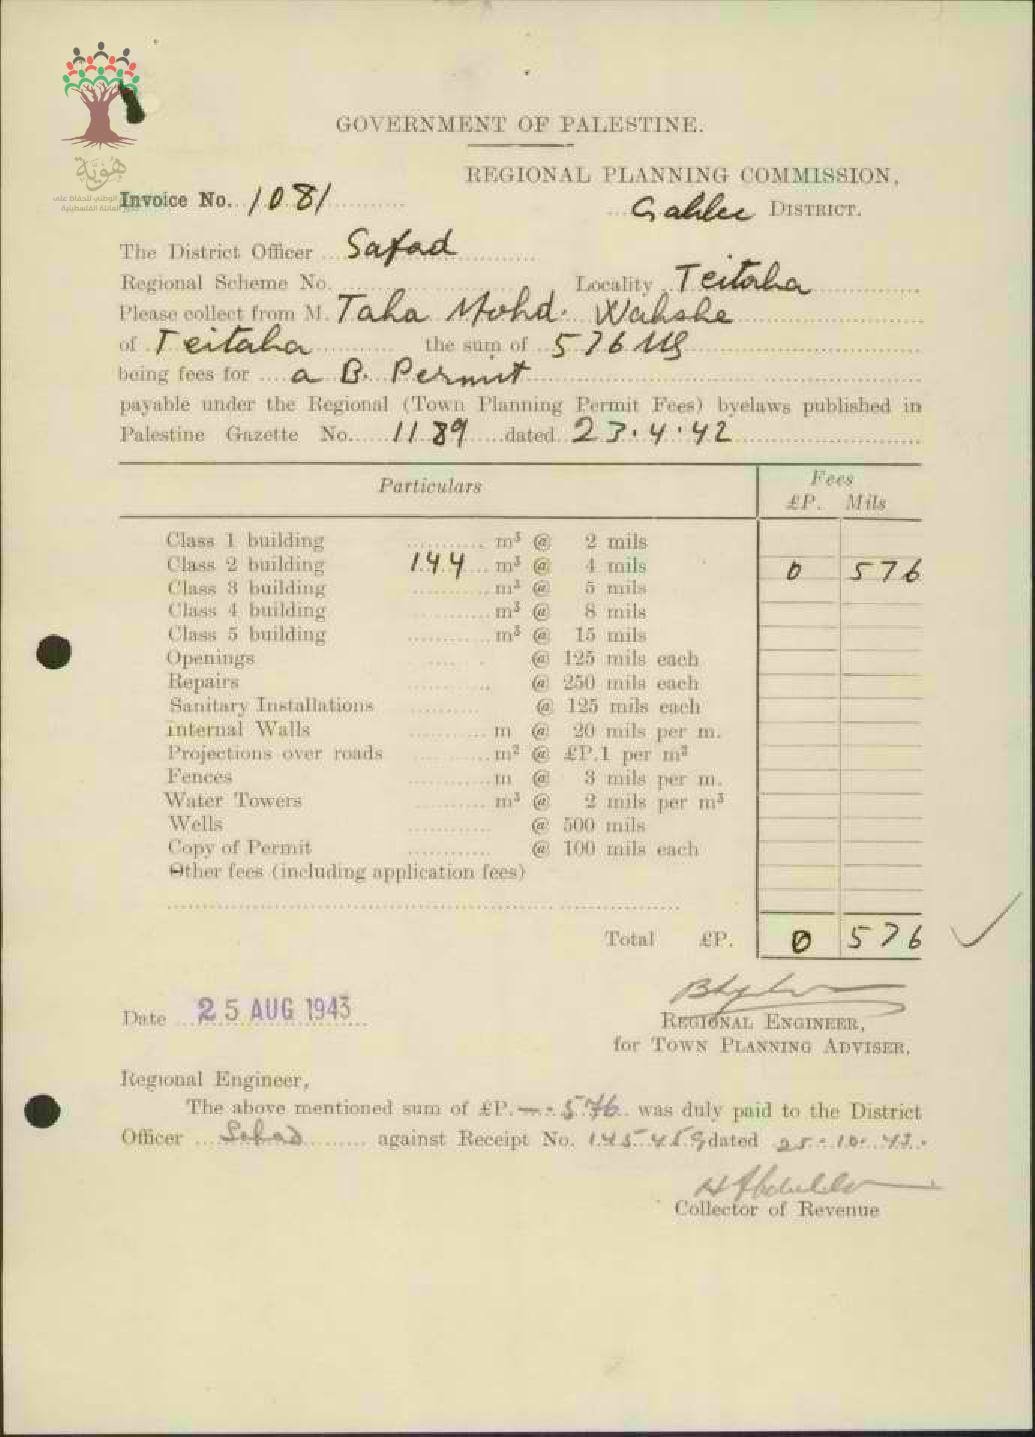 هويّة
الوطني للحفاظ على
العائلة الفلسطينية
GOVERNMENT OF PALESTINE.
REGIONAL PLANNING COMMISSION,
Invoice No. 1081
Galilee DISTRICT.
The District Officer Safad
Regional Scheme No. Locality Teitaba
Please collect from M. Taha Mohd. Wahshe
of Teitaba the sum of 576 Mls
being fees for a B. Permit
payable under the Regional (Town Planning Permit Fees) byelaws published in
Palestine Gazette No. 1189 dated 23.4.42
Particulars Fees
£P. Mils
Class 1 building m³ @ 2 mils
Class 2 building 144 m³ @ 4 mils 0 576
Class 3 building m³ @ 5 mils
Class 4 building m³ @ 8 mils
Class 5 building m³ @ 15 mils
Openings @ 125 mils each
Repairs @ 250 mils each
Sanitary Installations @ 125 mils each
Internal Walls m @ 20 mils per m.
Projections over roads m² @ £P.1 per m²
Fences m @ 3 mils per m.
Water Towers m³ @ 2 mils per m³
Wells @ 500 mils
Copy of Permit @ 100 mils each
Other fees (including application fees)
Total £P. 0 576
Date 25 AUG 1943
REGIONAL ENGINEER,
for TOWN PLANNING ADVISER.
Regional Engineer,
The above mentioned sum of £P. —.576 was duly paid to the District
Officer Safad against Receipt No. 145459 dated 25.10.43.
Collector of Revenue